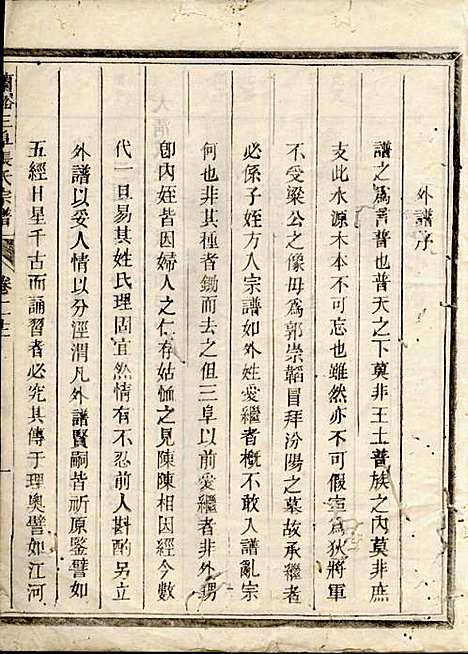 外譜序
譜之爲言普也普天之下莫非王土普族之內莫非庶
支此水源木本不可忘也雖然亦不可假寧爲狄將軍
不受梁公之像毋爲郭崇韜冒拜汾陽之墓故承繼者
必係子姪方入宗譜如外姓愛繼者概不敢入譜亂宗
何也非其種者鋤而去之但三阜以前愛繼者非外甥
卽內姪皆因婦人之仁存姑恤之見陳陳相因經今數
代一旦易其姓氏理固宜然情有不忍前人斟酌另立
外譜以妥人情以分涇渭凡外譜賢嗣皆祈原鑒譬如
五經日星千古而誦習者必究其傳于理奧譬如江河
蘭谿三阜張氏宗譜 卷二